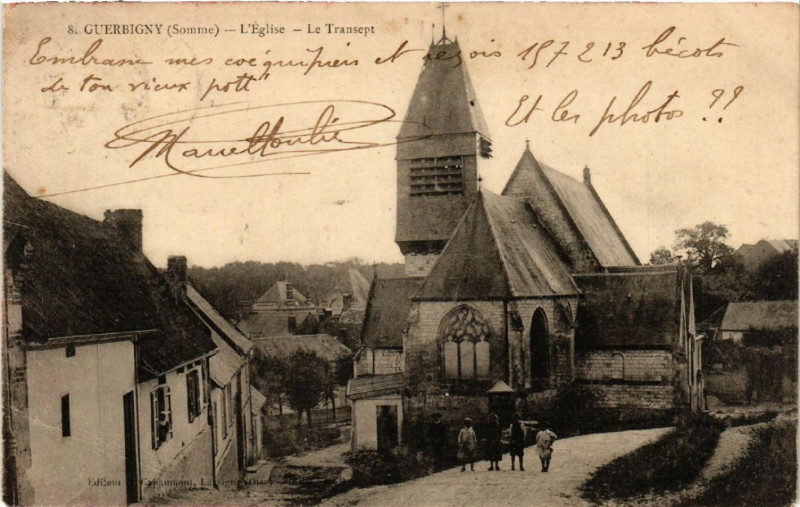 8. GUERBIGNY (Somme) — L'Église — Le Transept
Embrasse mes coéquipiers et reçois 157 213 bécots
de ton vieux pott
Et les photos ??
Editeur Lassigny (Oise)